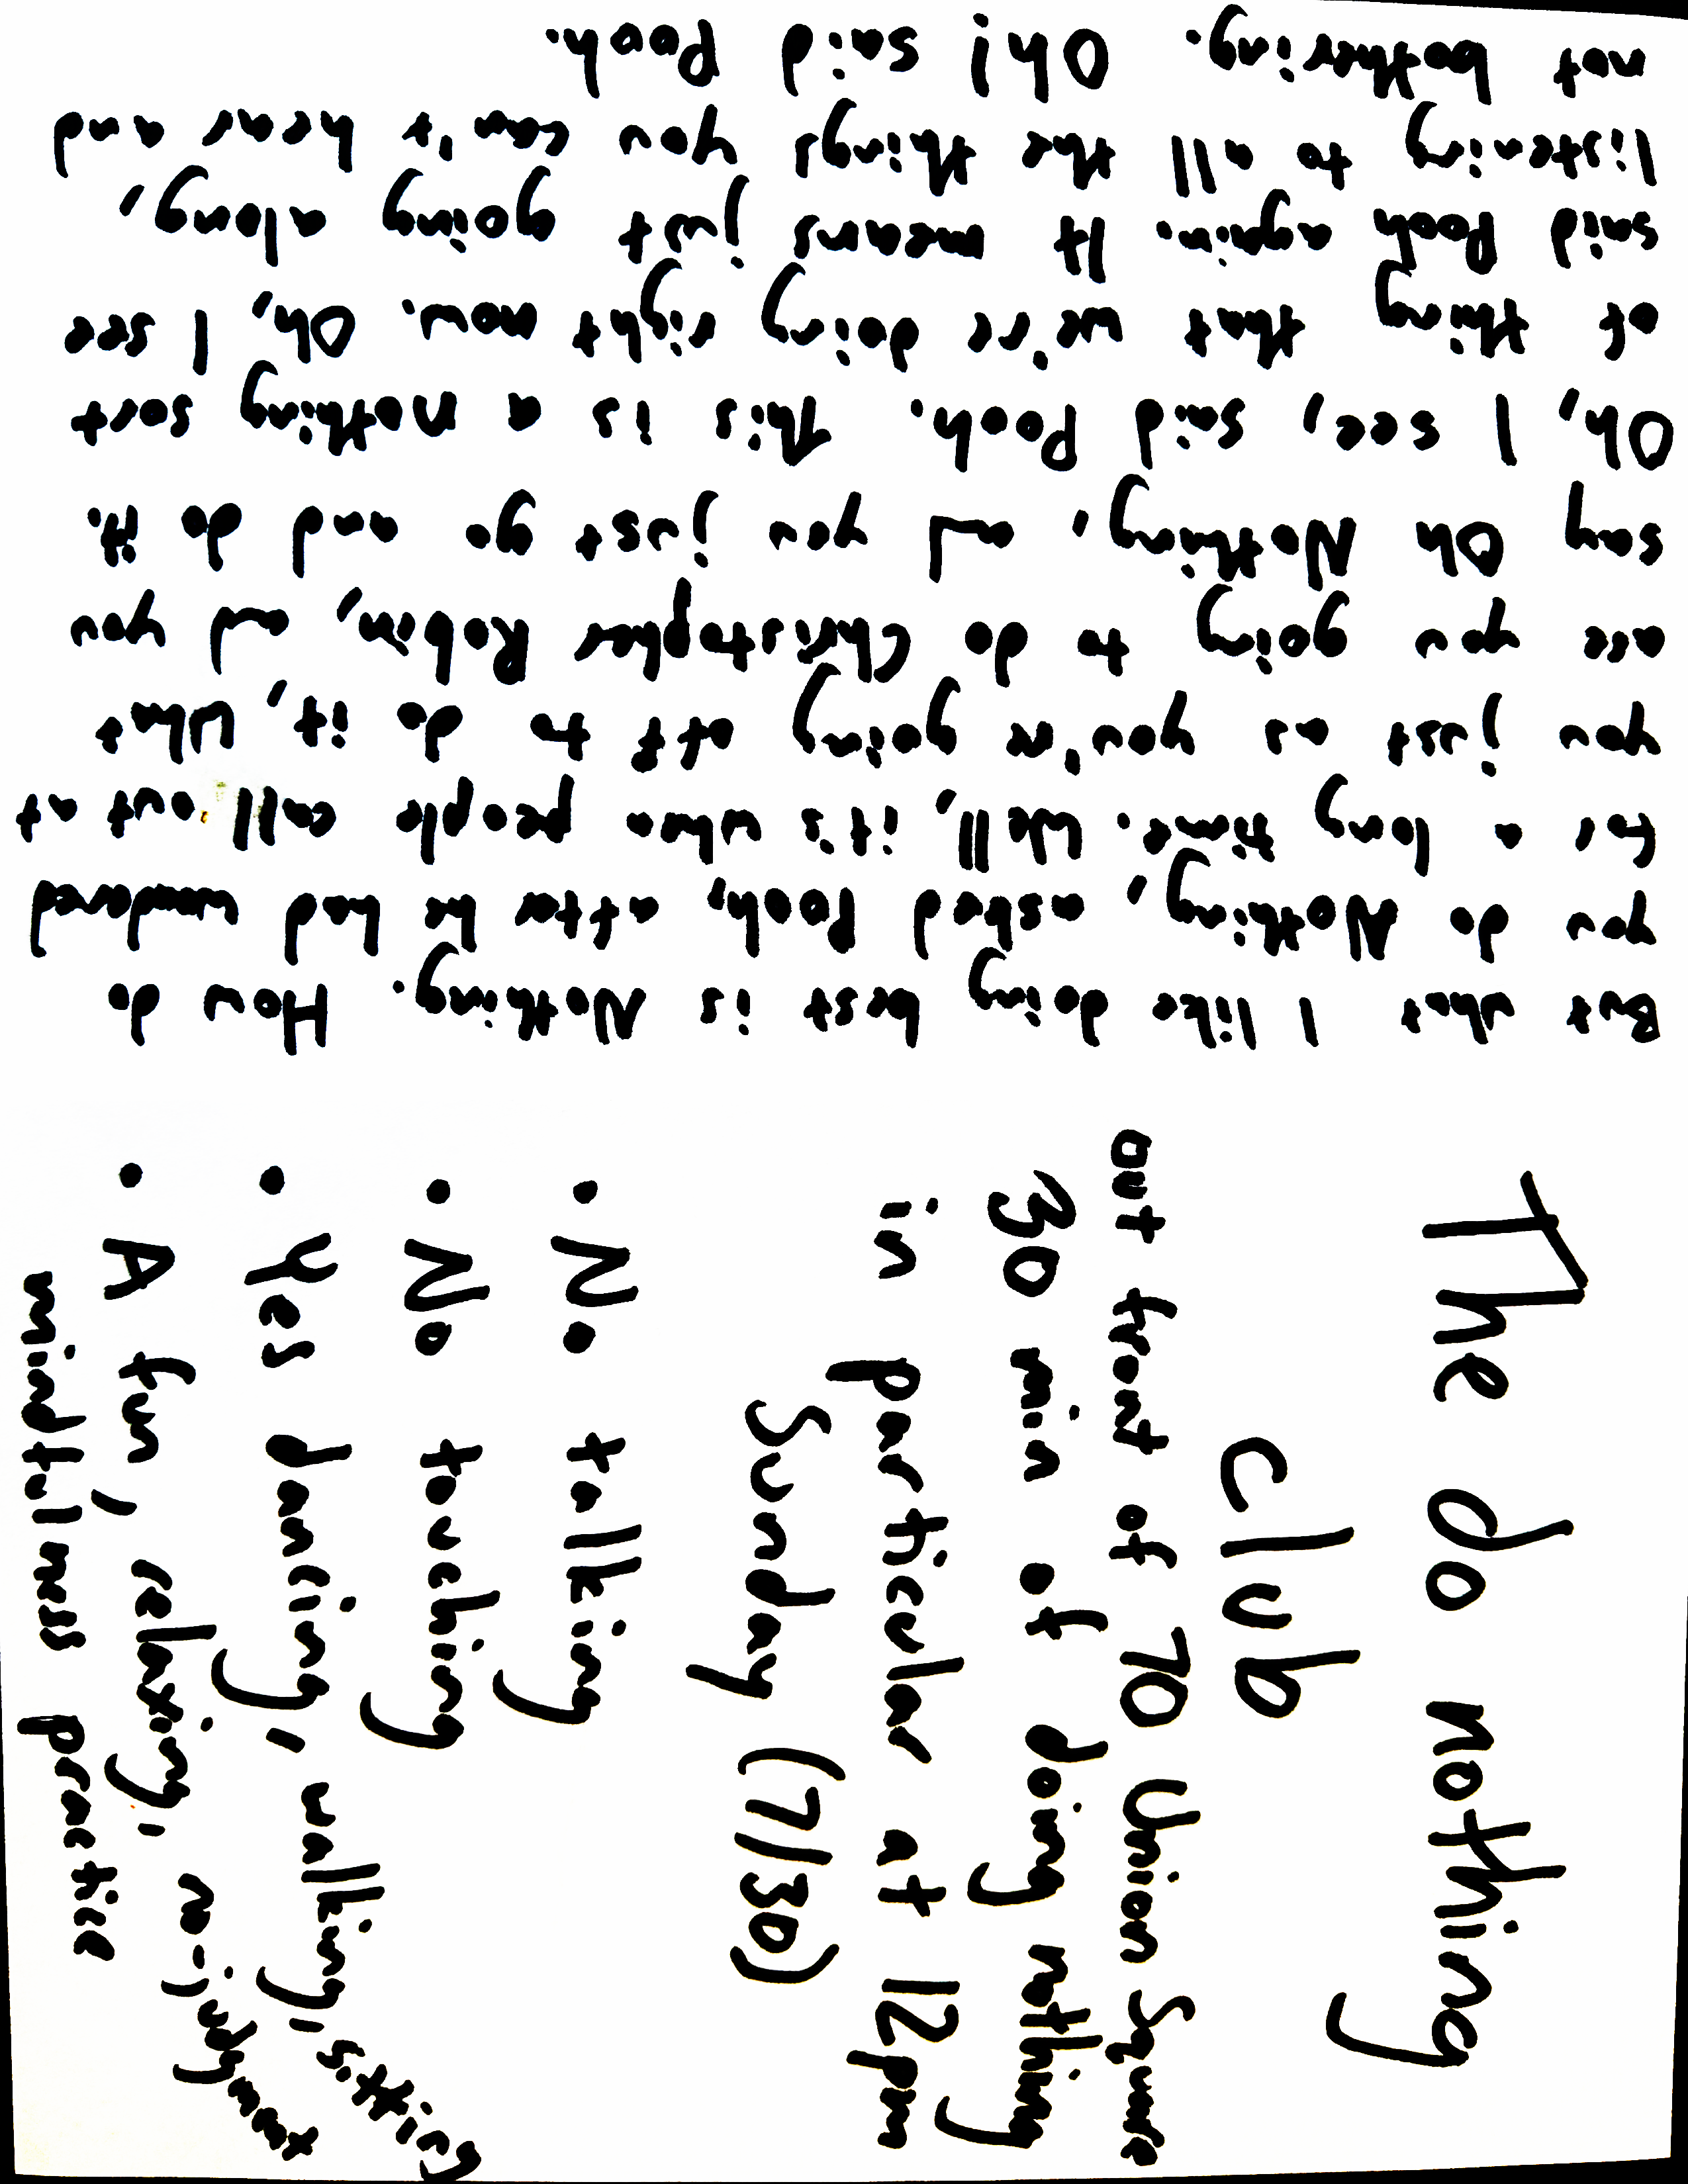 But what I like doing best is Nothing. How do
you do Nothing, asked Pooh, after he had wondered
for a long time. Well, it's when people call out at
you just as you're going off to do it, What
are you going to do Christopher Robin, and you
say Oh Nothing, and you just go and do it.
Oh, I see, said Pooh. This is a nothing sort
of thing that we're doing right now. Oh, I see
said Pooh again. It means just going along,
listening to all the things you can't hear and
not bothering. Oh! said Pooh.
The do nothing
Club
out front of 70 Union Square
30 min of doing nothing
in particular at 12pm
Sunday (7/30)
• No talking
• No touching
• Yes dancing, walking, sitting
• A fun, relaxing, no-judgment
mindfulness practice